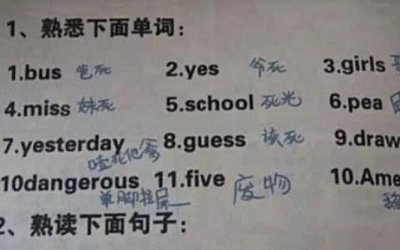 1、熟悉下面单词：
1.bus 包死 2.yes 爷死 3.girls
4.miss 妹死 5.school 死光 6.pea
7.yesterday 8.guess 该死 9.draw
噎死他爹
10dangerous 11.five 废物 10.Ame
单脚拉屎
2、熟读下面句子：